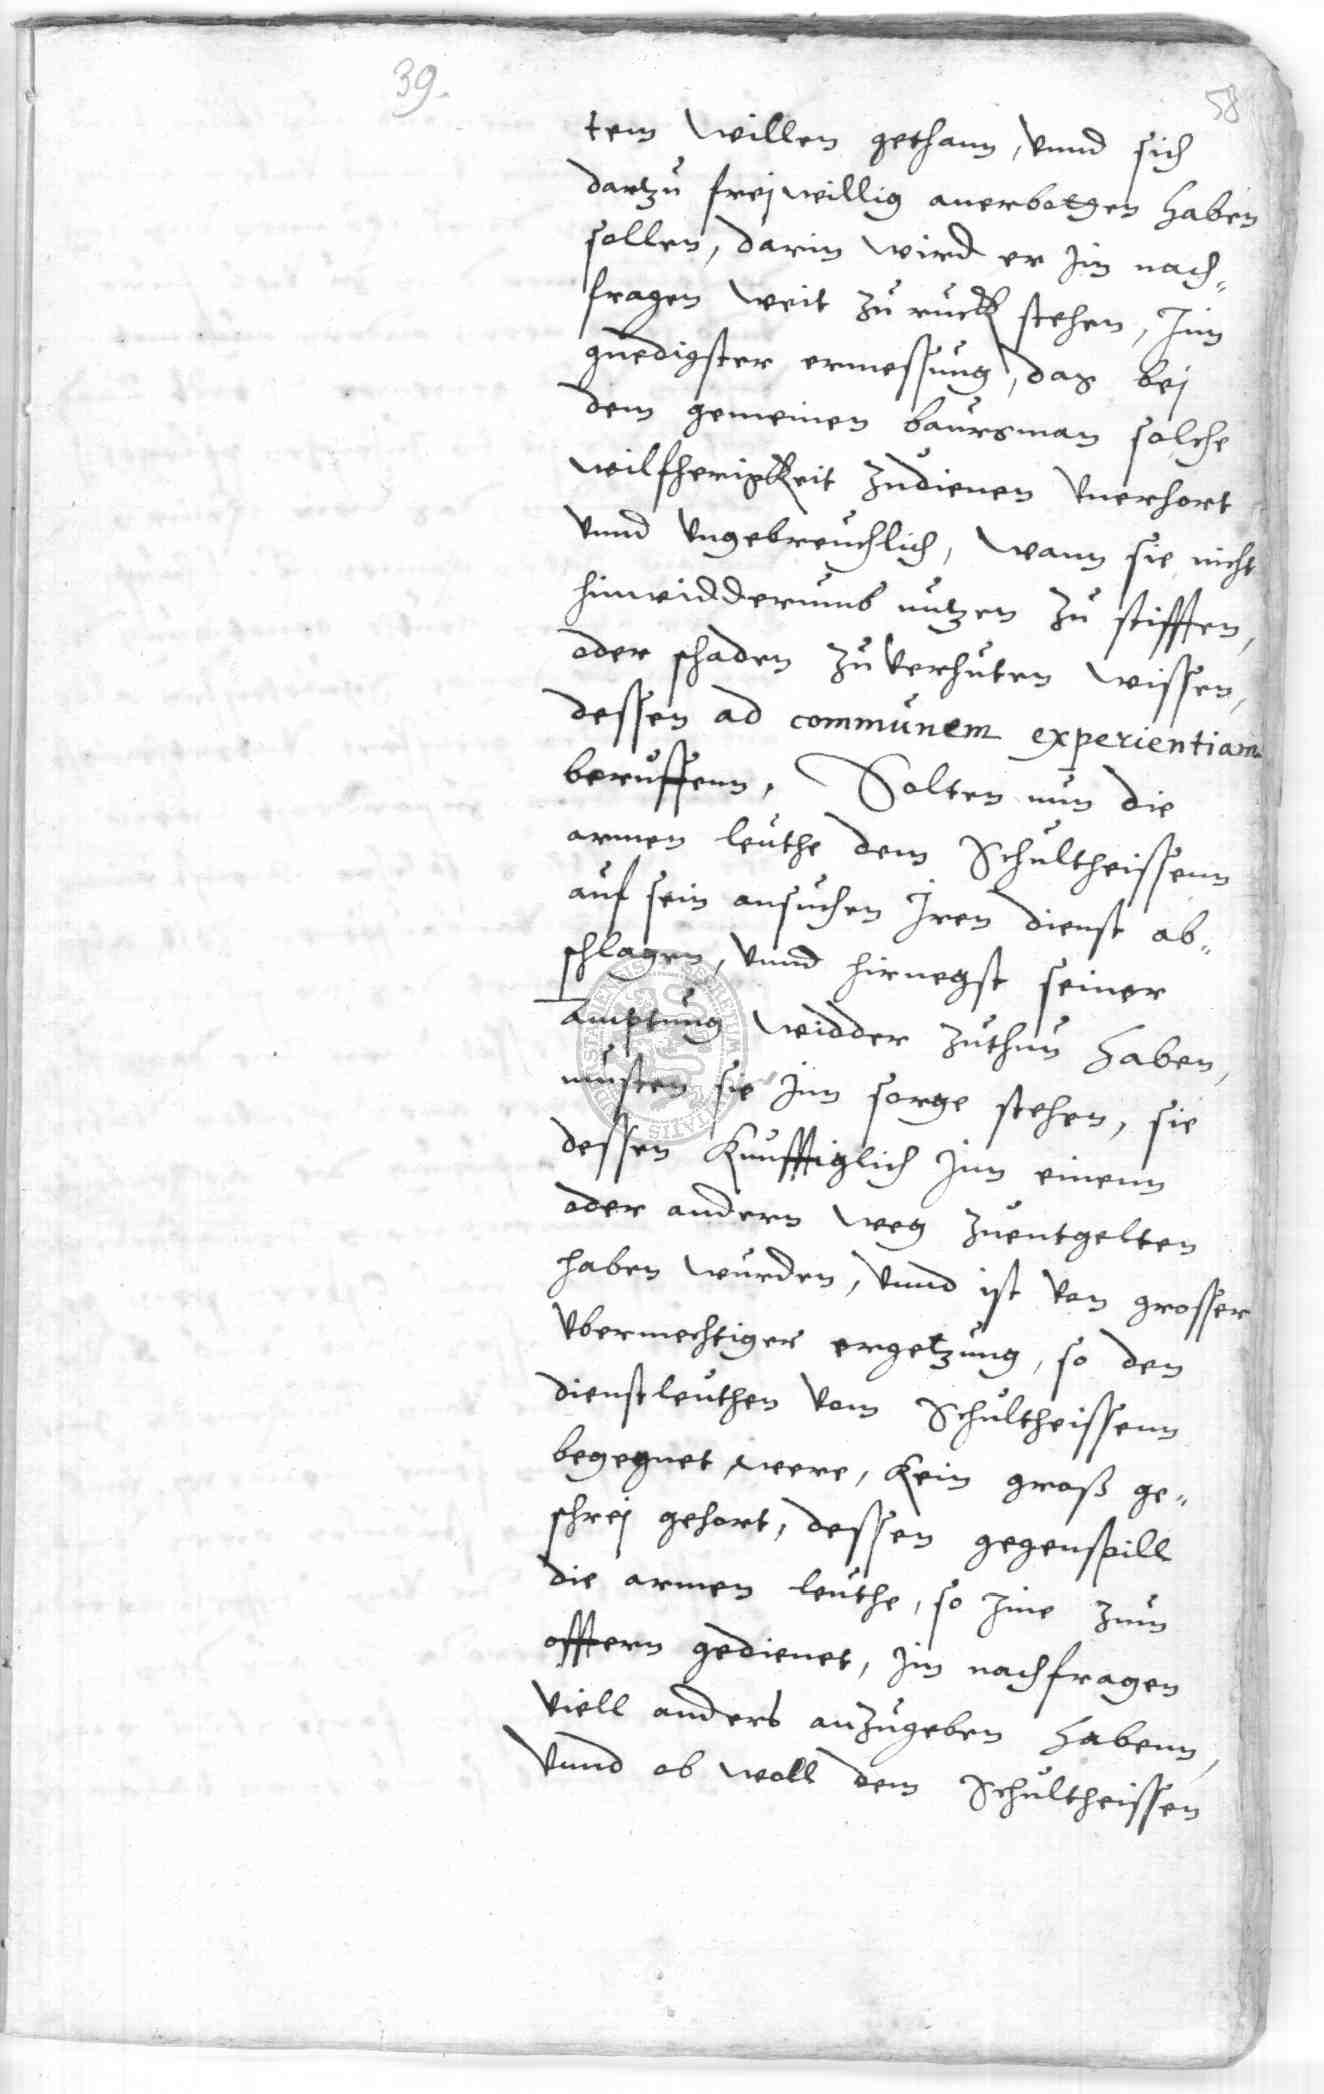 39.
58
tem willen gethann, vnnd sich
dartzu freiwillig anerbotgen haben
sollen, darin wird er Jm nach-
fragen weit zu ruckh stehen, Jnn
gnedigster ermessung, das bej
dem gemeinen baursman solche
wilfherigkeit zudienen vnerhort
vnnd vngebreuchlich, wann sie nicht
hinwidderumb nutzen zu stifften,
oder schaden zuverhuten wissen,
dessen ad communem experientiam
beruffenn, Solten nun die
armen leuthe dem Schultheissenn
auf sein ansuchen Jren dienst ab-
schlagen, vnnd hirnegst seiner
Amptung widder zuthun haben,
musten sie Jnn sorge stehen, sie
dessen kunfftiglich Jnn einenn
oder andern weg zuentgelten
haben wurden, vnnd ist von grosser
vbermechtiger ergetzung, so den
dienstleuthen vom Schultheissenn
begegnet were, kein groß ge-
schrej gehort, dessen gegenspill
die armen leuthe, so Jme zum
offtern gedienet, Jm nachfragen
viell anders anzugeben habenn,
vnnd ob woll dem Schultheissen